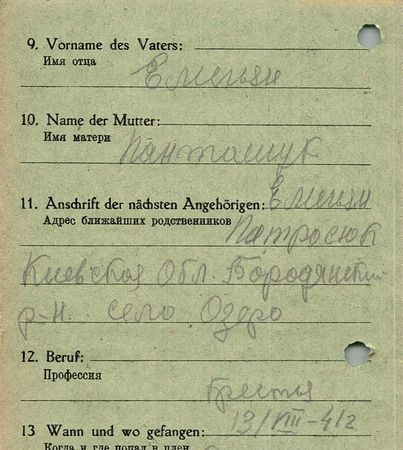 9. Vorname des Vaters:
Имя отца
Емельян
10. Name der Mutter:
Имя матери
Панташук
11. Anschrift der nächsten Angehörigen: Емельян
Адрес ближайших родственников
Патросюк
Киевская Обл. Бородянский
р-н. село Оздро
12. Beruf:
Профессия
13/VIII-42
13 Wann und wo gefangen:
Когда и где попал в плен